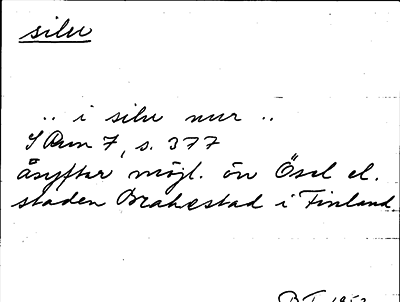 silu
.. i silu nur ..
S Run 7, s. 377
åsyftar möjl. ön Ösel el.
staden Brahestad i Finland